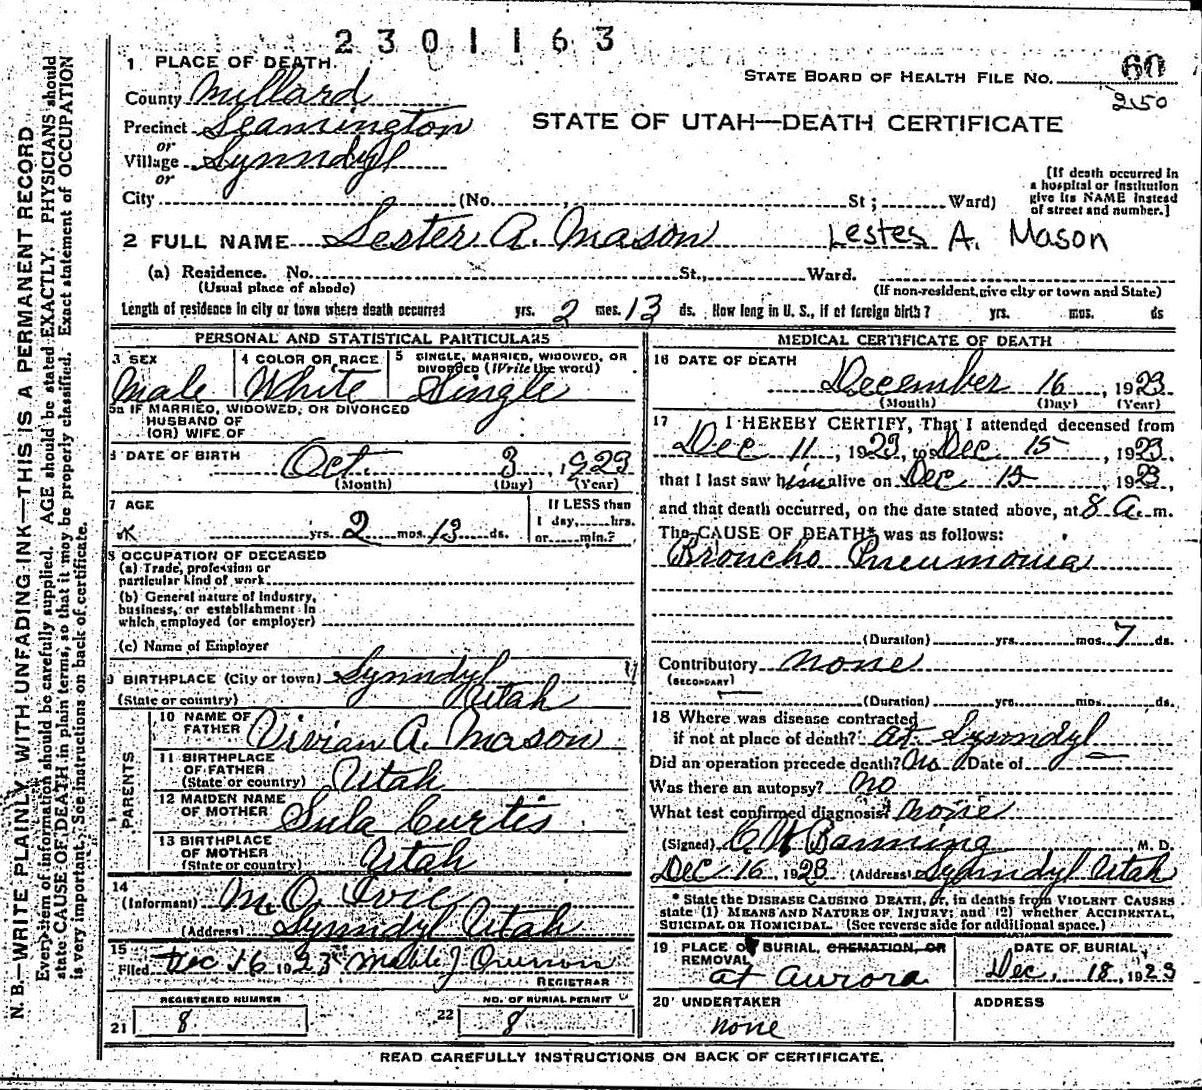 2301163
1 PLACE OF DEATH
STATE BOARD OF HEALTH FILE NO. 60
2150
County Millard
Precinct Leamington
or
Village Lynndyl
or
STATE OF UTAH—DEATH CERTIFICATE
City (No. , St; Ward)
[If death occurred in a hospital or institution give its NAME instead of street and number.]
2 FULL NAME Lester A. Mason Lestes A. Mason
(a) Residence. No. St., Ward.
(Usual place of abode) (If non-resident, give city or town and State)
Length of residence in city or town where death occurred yrs. 2 mos. 13 ds. How long in U. S., if of foreign birth? yrs. mos. ds
PERSONAL AND STATISTICAL PARTICULARS
3 SEX
Male
4 COLOR OR RACE
White
5 SINGLE, MARRIED, WIDOWED, OR DIVORCED (Write the word)
Single
5a IF MARRIED, WIDOWED, OR DIVORCED
HUSBAND OF
(OR) WIFE OF
6 DATE OF BIRTH
Oct. 3, 1923
(Month) (Day) (Year)
7 AGE
yrs. 2 mos. 13 ds.
If LESS than
1 day, hrs.
or min.?
8 OCCUPATION OF DECEASED
(a) Trade, profession or
particular kind of work
(b) General nature of industry,
business, or establishment in
which employed (or employer)
(c) Name of Employer
9 BIRTHPLACE (City or town) Lynndyl
(State or country) Utah
PARENTS
10 NAME OF FATHER Vivian A. Mason
11 BIRTHPLACE OF FATHER (State or country) Utah
12 MAIDEN NAME OF MOTHER Sula Curtis
13 BIRTHPLACE OF MOTHER (State or country) Utah
14
(Informant) M. O.
(Address) Lynndyl Utah
15
Filed Dec 16 1923 Mable J
REGISTRAR
REGISTERED NUMBER
21 8
NO. OF BURIAL PERMIT
22 8
MEDICAL CERTIFICATE OF DEATH
16 DATE OF DEATH
December 16, 1923
(Month) (Day) (Year)
17 I HEREBY CERTIFY, That I attended deceased from
Dec 11, 1923, to Dec 15, 1923,
that I last saw him alive on Dec 15 1923,
and that death occurred, on the date stated above, at 8 A. m.
The CAUSE OF DEATH* was as follows:
Broncho Pneumonia
(Duration) yrs. mos. 7 ds.
Contributory none
(SECONDARY)
(Duration) yrs. mos. ds.
18 Where was disease contracted
if not at place of death? at Lynndyl
Did an operation precede death? No Date of —
Was there an autopsy? no
What test confirmed diagnosis? none
(Signed) C W Banning M. D.
Dec 16, 1923 (Address) Lynndyl Utah
* State the DISEASE CAUSING DEATH, or, in deaths from VIOLENT CAUSES
state (1) MEANS AND NATURE OF INJURY; and (2) whether ACCIDENTAL,
SUICIDAL OR HOMICIDAL. (See reverse side for additional space.)
19 PLACE OF BURIAL, CREMATION, OR REMOVAL
at Aurora
DATE OF BURIAL
Dec. 18, 1923
20 UNDERTAKER
none
ADDRESS
READ CAREFULLY INSTRUCTIONS ON BACK OF CERTIFICATE.
N. B.—WRITE PLAINLY WITH UNFADING INK—THIS IS A PERMANENT RECORD
Every item of information should be carefully supplied. AGE should be stated EXACTLY. PHYSICIANS should
state CAUSE OF DEATH in plain terms, so that it may be properly classified. Exact statement of OCCUPATION
is very important. See instructions on back of certificate.